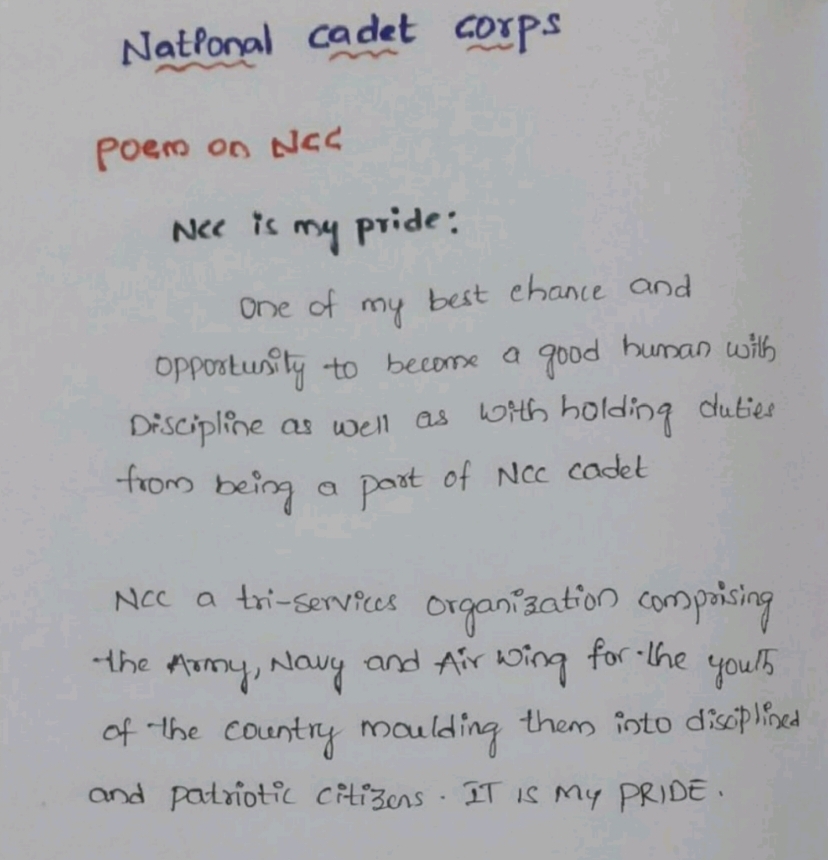 National cadet corps
Poem on NCC
NCC is my pride:
One of my best chance and
opportunity to become a good human with
Discipline as well as with holding duties
from being a part of NCC cadet
NCC a tri-services organization comprising
the Army, Navy and Air Wing for the youth
of the country moulding them into disciplined
and patriotic citizens. IT IS MY PRIDE.